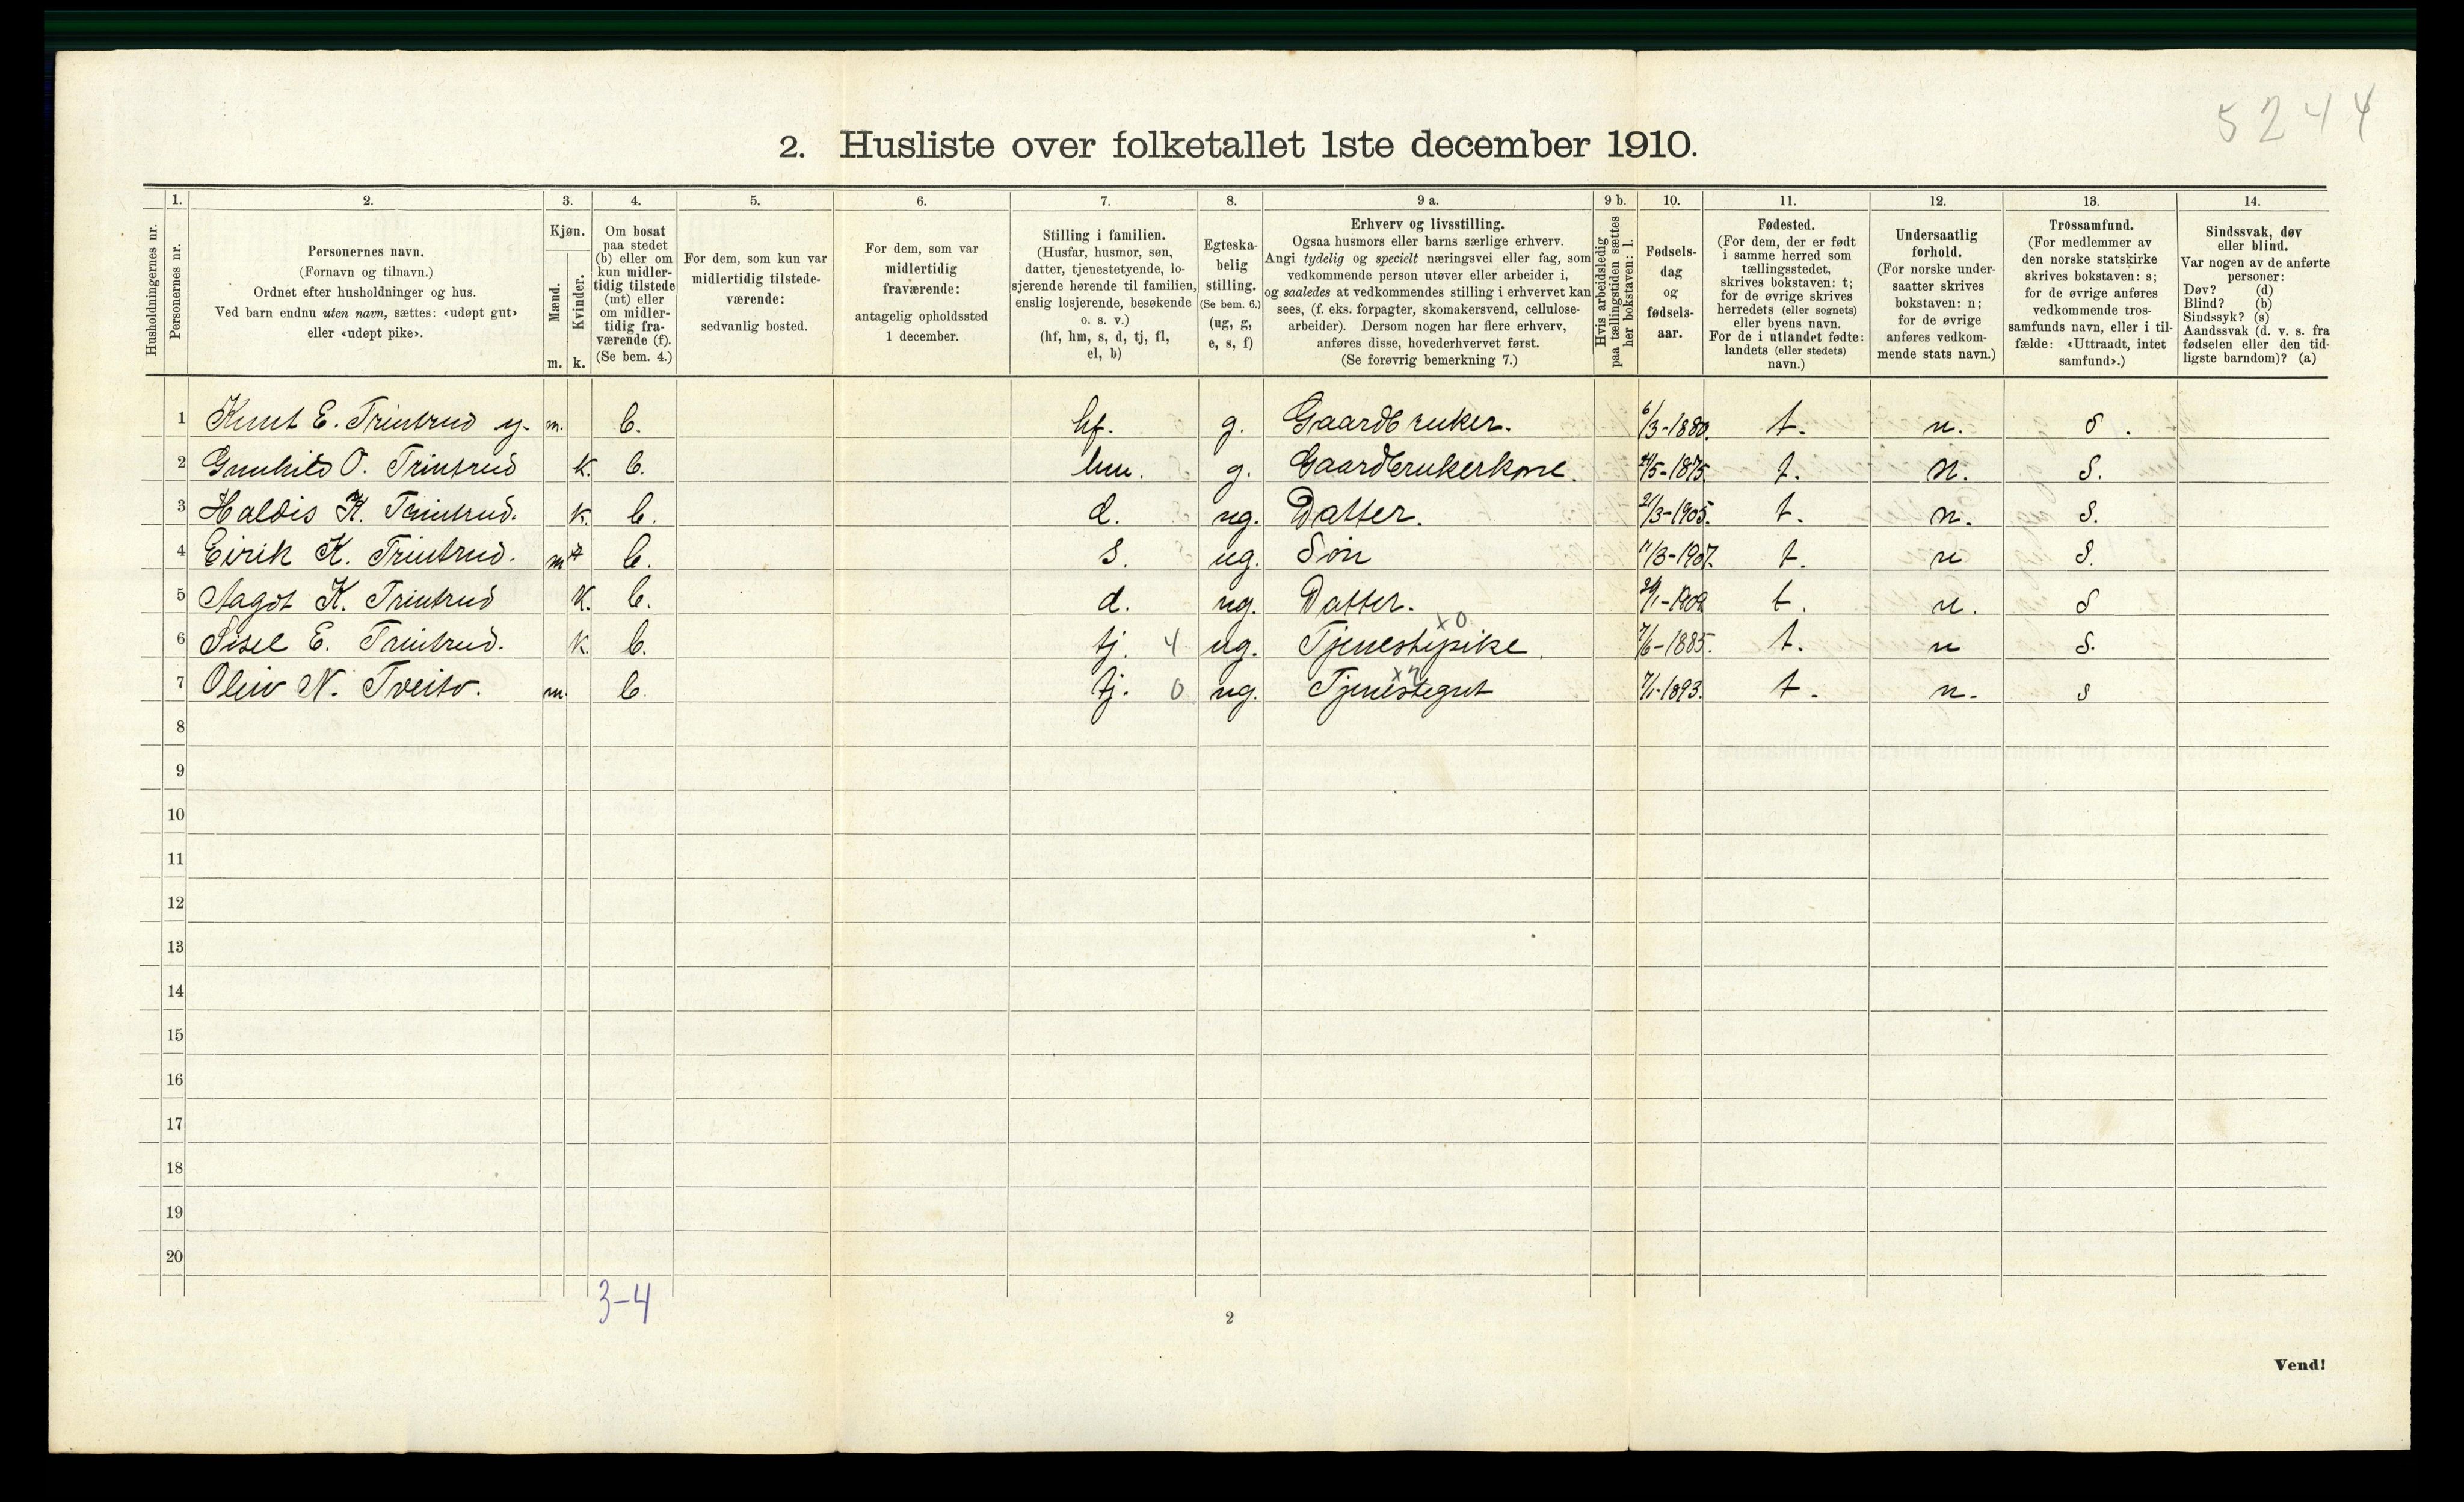 5244
2. Husliste over folketallet 1ste december 1910.
1. 2. 3. 4. 5. 6. 7. 8. 9 a. 9 b. 10. 11. 12. 13. 14.
Husholdningernes nr.
Personernes nr.
Personernes navn.
(Fornavn og tilnavn.)
Ordnet efter husholdninger og hus.
Ved barn endnu uten navn, sættes: «udøpt gut»
eller «udøpt pike».
Kjøn.
Mænd.
Kvinder.
m. k.
Om bosat
paa stedet
(b) eller om
kun midler-
tidig tilstede
(mt) eller
om midler-
tidig fra-
værende (f).
(Se bem. 4.)
For dem, som kun var
midlertidig tilstede-
værende:
sedvanlig bosted.
For dem, som var
midlertidig
fraværende:
antagelig opholdssted
1 december.
Stilling i familien.
(Husfar, husmor, søn,
datter, tjenestetyende, lo-
sjerende hørende til familien,
enslig losjerende, besøkende
o. s. v.)
(hf, hm, s, d, tj, fl,
el, b)
Egteska-
belig
stilling.
(Se bem. 6.)
(ug, g,
e, s, f)
Erhverv og livsstilling.
Ogsaa husmors eller barns særlige erhverv.
Angi tydelig og specielt næringsvei eller fag, som
vedkommende person utøver eller arbeider i,
og saaledes at vedkommendes stilling i erhvervet kan
sees, (f. eks. forpagter, skomakersvend, cellulose-
arbeider). Dersom nogen har flere erhverv,
anføres disse, hovederhvervet først.
(Se forøvrig bemerkning 7.)
Hvis arbeidsledig
paa tællingstiden sættes
her bokstaven: l.
Fødsels-
dag
og
fødsels-
aar.
Fødested.
(For dem, der er født
i samme herred som
tællingsstedet,
skrives bokstaven: t;
for de øvrige skrives
herredets (eller sognets)
eller byens navn.
For de i utlandet fødte:
landets (eller stedets)
navn.)
Undersaatlig
forhold.
(For norske under-
saatter skrives
bokstaven: n;
for de øvrige
anføres vedkom-
mende stats navn.)
Trossamfund.
(For medlemmer av
den norske statskirke
skrives bokstaven: s;
for de øvrige anføres
vedkommende tros-
samfunds navn, eller i til-
fælde: «Uttraadt, intet
samfund».)
Sindssvak, døv
eller blind.
Var nogen av de anførte
personer:
Døv? (d)
Blind? (b)
Sindssyk? (s)
Aandssvak (d. v. s. fra
fødselen eller den tid-
ligste barndom)? (a)
1 Knut E. Trintrud y. m. b. hf. g. Gaardbruker. 6/3-1880. t. n. s.
2 Gunhild O. Trintrud k. b. hm. g. Gaardbrukerkone. 5-1875. t. n. s.
3 Haldis K. Trintrud. k. b. d. ug. Datter. 21/3-1905. t. n. s.
4 Eirik K. Trintrud. m b. s. ug. Søn 11/3-1907. t. n s.
5 Aagot K. Trintrud k. b. d. ug. Datter. 1-1909 t. n. s
6 Sisel E. Trintrud. k. b. tj. 4 ug. Tjenestepike. x0 7/6-1885. t. n s.
7 Oliv N. Tveito. m. b. tj. 0 ug. Tjenestegut 7/1-1893. t. n. s
8
9
10
11
12
13
14
15
16
17
18
19
20
3-4
2
Vend!